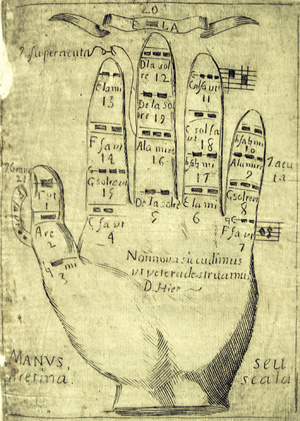 20
E LA
7 Superacuta
Dla sol
re 12
Elami
13
11
Dela sol
re 19
C sol fa
ut 18
F fa ut
14
Ala mi
re 16
b fa b
mi 17
b fa b
mi 10
Ala mi re
9
7 acu
ta
G sol re
ut 15
7 Grau
21
ut
1
G sol re
ut 8
De la sol re
5
E la mi
6
C fa ut
4
F fa ut
7
A re
2
mi
3
Non nova sic cudimus
ut vetera destruamus
D. Hier
MANVS,
seu
aretina.
scala